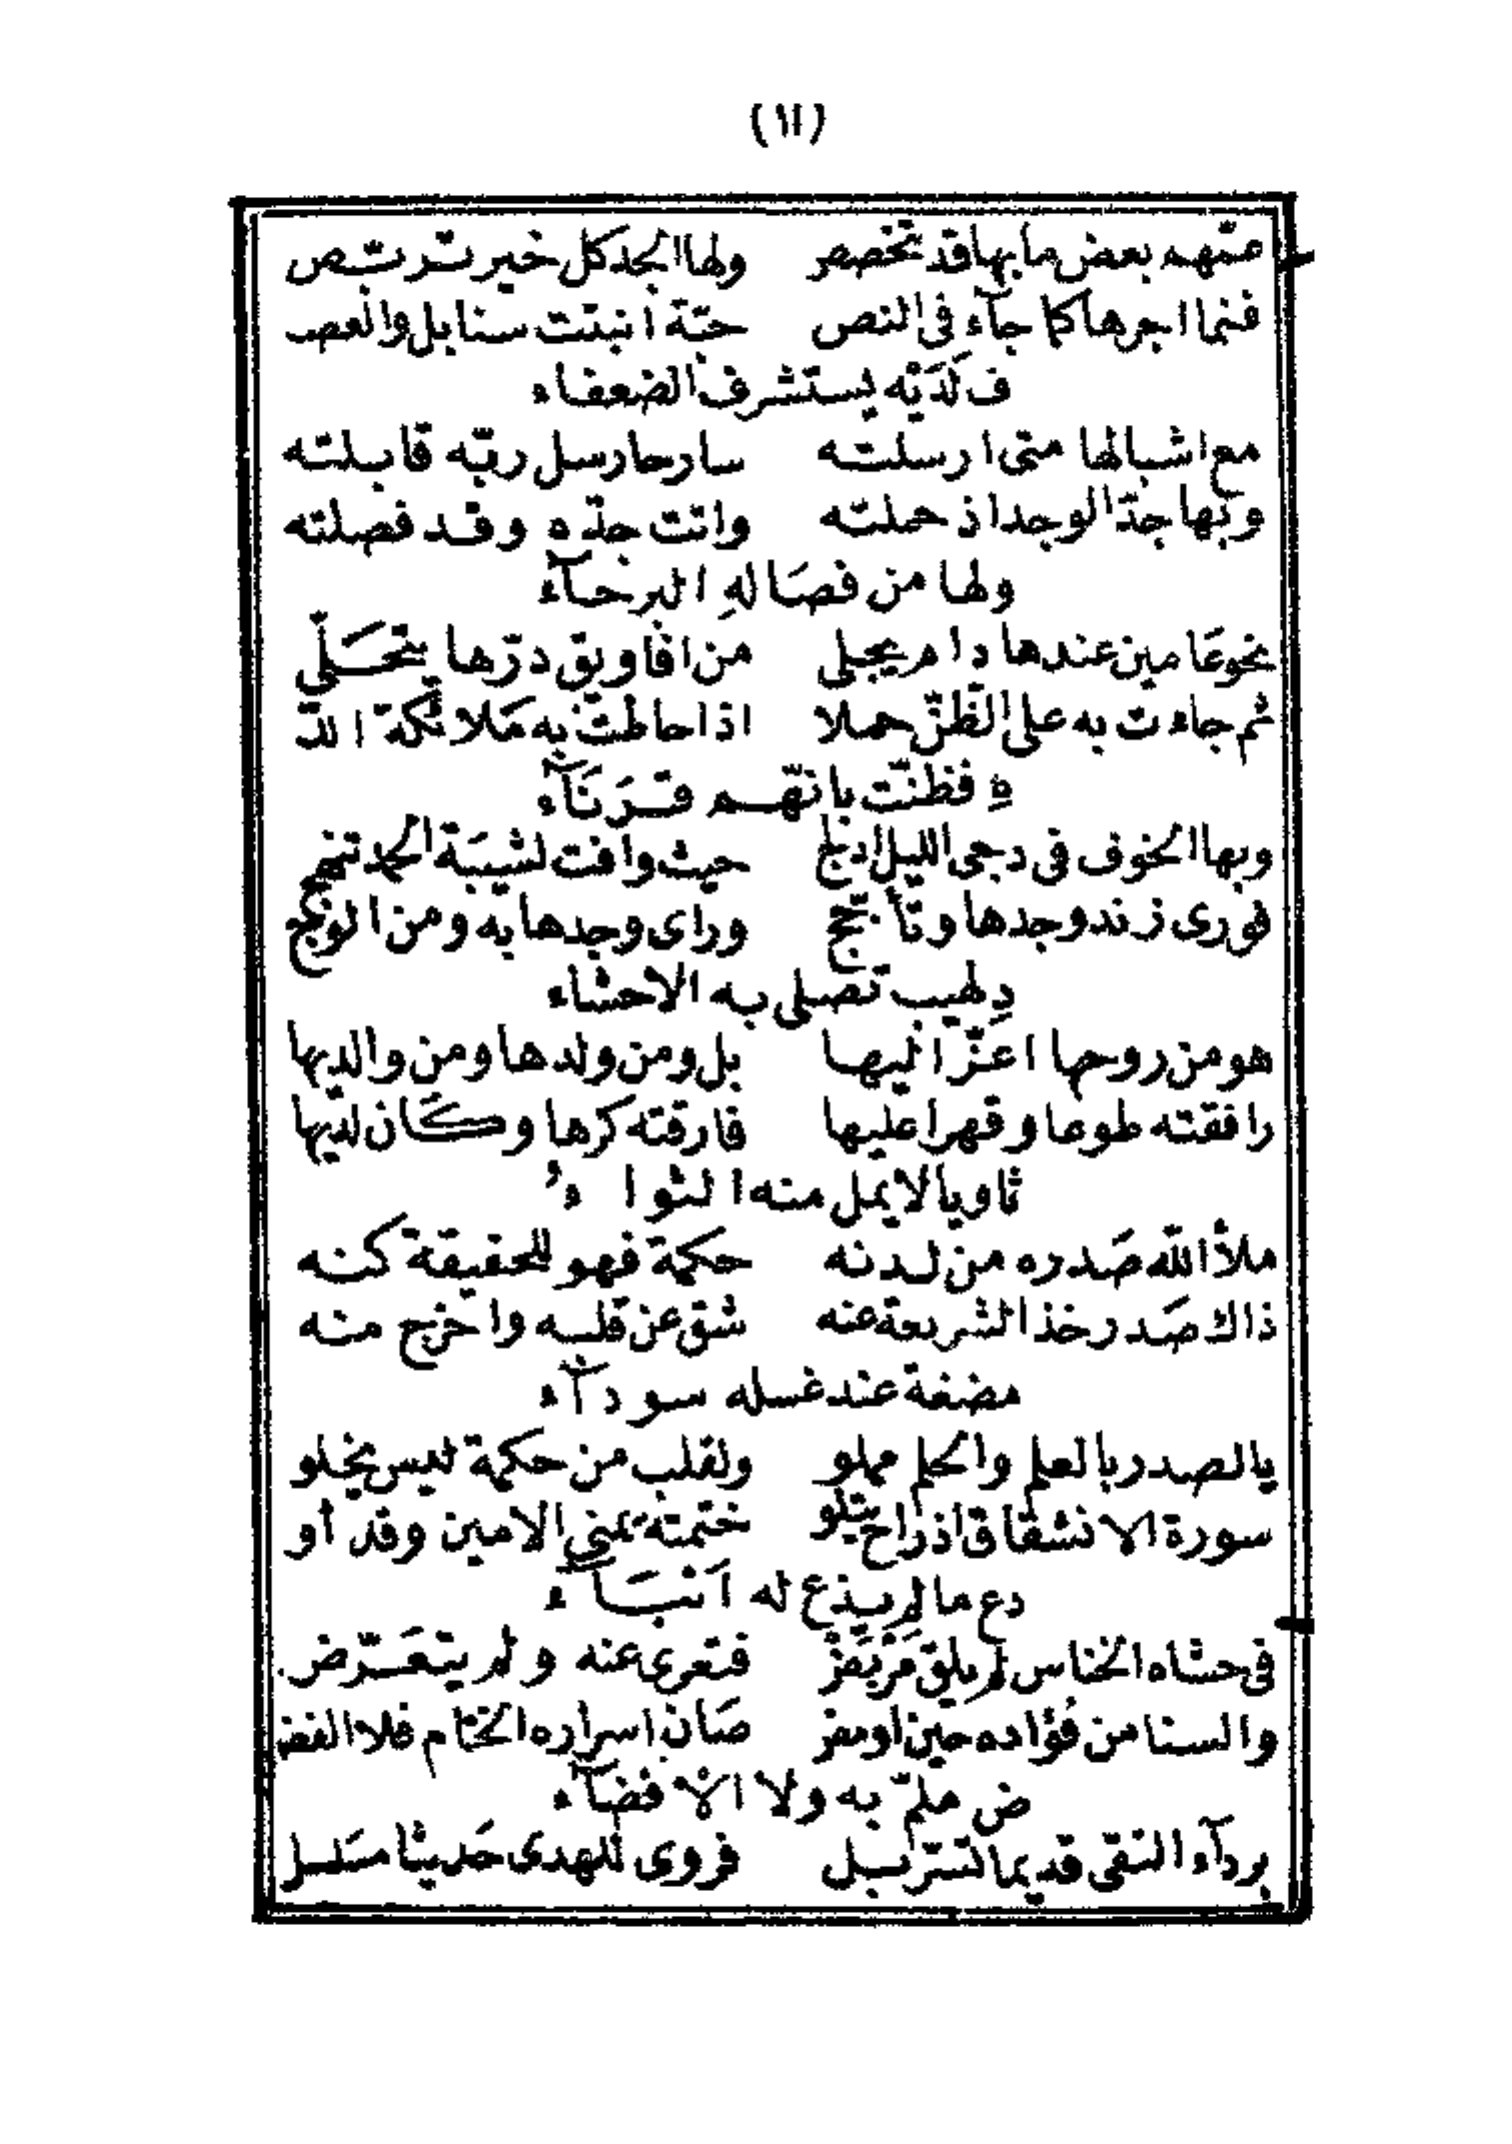 (١١)
عمّهم بعض ما بها قد تخصص ولها الجد كل خير تربّص
فنما اجرها كما جآء فى النص حبّة انبتت سنابل والعص
ف لَدَيْه يستشرف الضعفاء
مع اشبالها متى ارسلته سارحا رسل ربّه قابلته
وبها جدّ الوجد اذ حملته واتت جدّه وقد فصلته
ولها من فصَالهِ البرحآء
نحوعَامين عندها دام يجبلى من افاويق درّها يتحَلّى
ثم جاءت به على الظنّ حملا اذ احاطت به مَلائكة اللّ
هِ فظنّت بانهّم قرَنَآء
وبها الخوف فى دجى الليل ادلج حيث وافت لشيبَة الحمد تنهج
فورى زند وجدها وتأجّج وراى وجدها به ومن الوَجْ
دِ لهيب تصلى به الاحشاء
هو من روحها اعزّ اليها بل ومن ولدها ومن والديها
رافقته طوعا وقهرا عليها فارقته كرها وكَان لديها
ثاويا لا يمل منه الثواءُ
ملأ الله صَدره من لدنه حكمة فهو للحقيقة كنه
ذاك صَدر خذ الشريعة عنه شق عن قلبه واخرج منه
مضغة عند غسله سودآء
يالصدر بالعلم والحلم مملو ولقلب من حكمة ليس يخلو
سورة الانشقاق اذ راح يتلو ختمته يمنى الامين وقد أو
دع ما لم يذع له اَنْبَآء
فى حشاه الخناس لم يلق مَرْبَضْ فتعرى عنه ولم يتعَرّض
والسنا من فُؤاده حين اومض صَان اسراره الختام فلا الفض
ض ملمّ به ولا الافضآء
بردآء التقى قديما تسربل فروى للهدى حَديثا مسَلسل